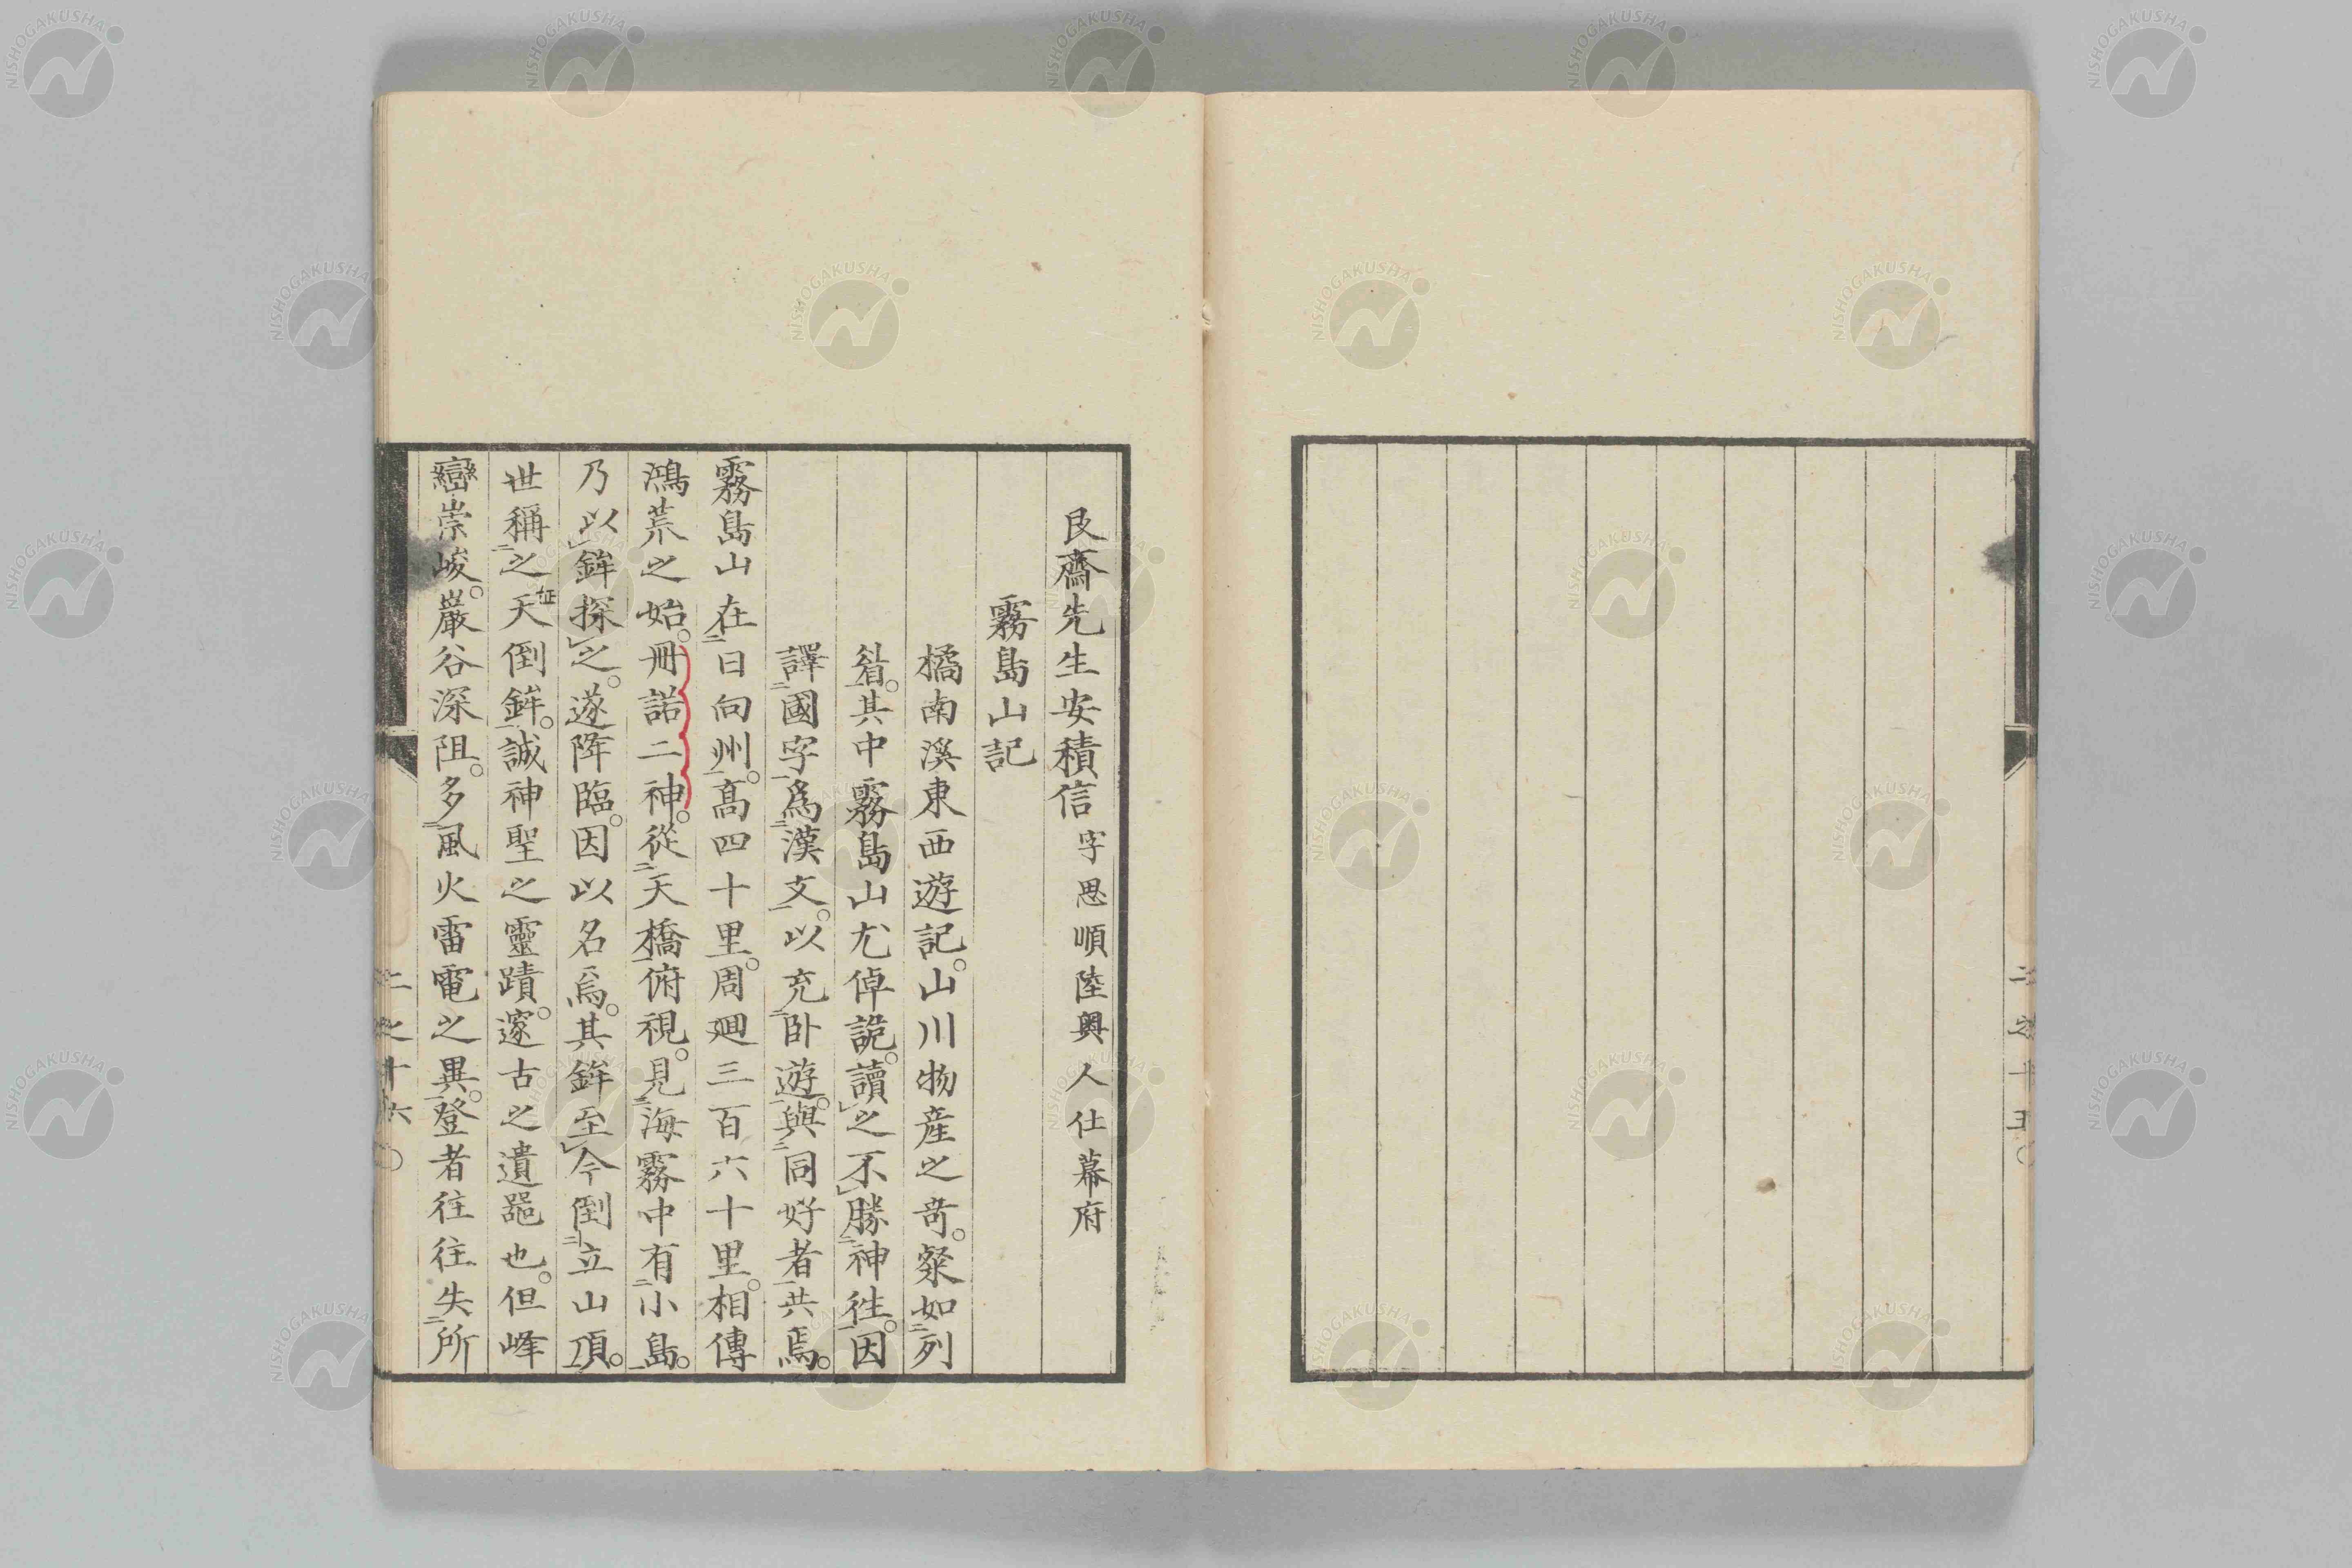 艮齋先生安積信 字思順陸奥人仕幕府
霧島山記
橘南溪東西遊記。山川物產之奇。粲如列
眉。其中霧島山尤倬詭。讀之不勝神往。因
譯國字爲漢文。以充卧遊。與同好者共焉。
霧島山在日向州。高四十里。周廻三百六十里。相傳
鴻荒之始。冊諾二神。從天橋俯視。見海霧中有小島。
乃以鉾探之。遂降臨。因以名焉。其鉾至今倒立山頂。
世稱之天倒鉾。誠神聖之靈蹟。邃古之遺噐也。但峰
巒崇峻。巖谷深阻。多風火雷電之異。登者往往失所
二之十六
二之十五
NISHOGAKUSHA